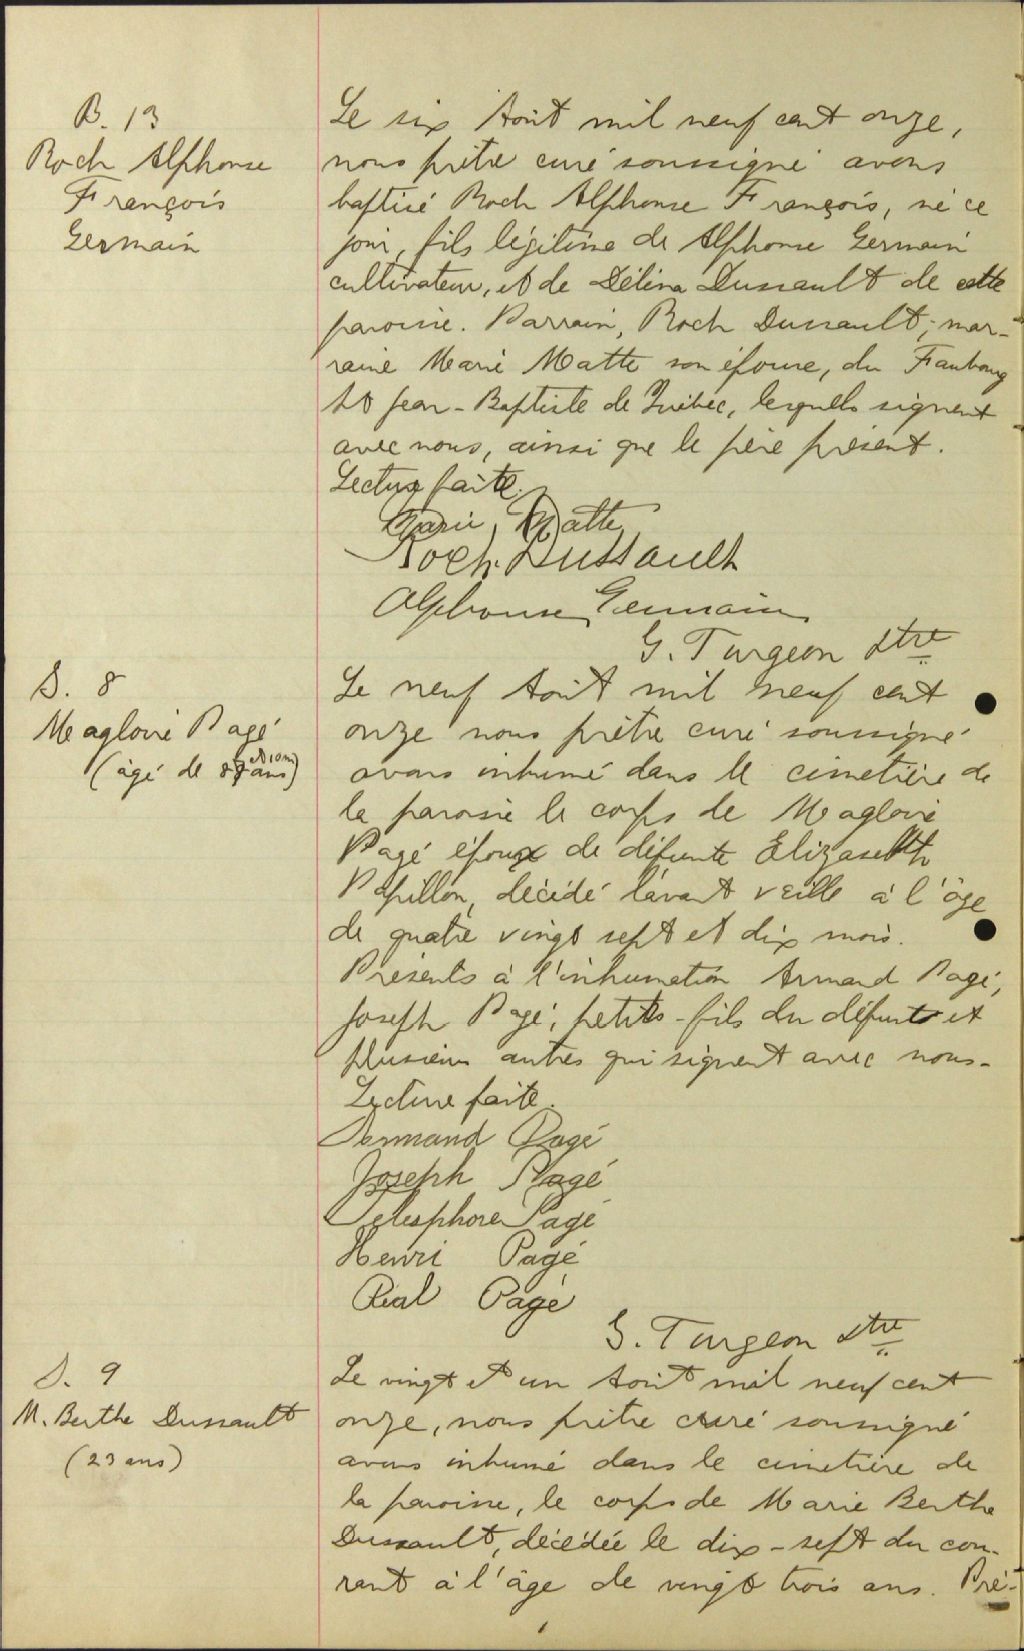 B. 13
Roch Alphonse
François
Germain
Le six Août mil neuf cent onze,
nous prêtre curé soussigné avons
baptisé Roch Alphonse François, né ce
jour, fils légitime de Alphonse Germain
cultivateur, et de Délina Dussault de cette
paroisse. Parrain, Roch Dussault; mar-
raine Marie Matte son épouse, du Faubourg
St Jean-Baptiste de Québec, lesquels signent
avec nous, ainsi que le père présent.
Lecture faite.
Marie Matte
Roch Dussault
Alphonse Germain
G. Turgeon Ptre
S. 8
Magloire Pagé
(âgé de 87 ans et 10 m)
Le neuf Août mil neuf cent
onze nous prêtre curé soussigné
avons inhumé dans le cimetière de
la paroisse le corps de Magloire
Pagé époux de défunte Elizabeth
Papillon, décédé l'avant veille à l'âge
de quatre vingt sept et dix mois.
Présents à l'inhumation Armand Pagé,
Joseph Pagé, petits-fils du défunt et
plusieurs autres qui signent avec nous.
Lecture faite.
Armand Pagé
Joseph Pagé
Télesphore Pagé
Henri Pagé
Réal Pagé
G. Turgeon Ptre
S. 9
M. Berthe Dussault
(23 ans)
Le vingt et un Août mil neuf cent
onze, nous prêtre curé soussigné
avons inhumé dans le cimetière de
la paroisse, le corps de Marie Berthe
Dussault, décédée le dix-sept du cou-
rant à l'âge de vingt trois ans. Pré-